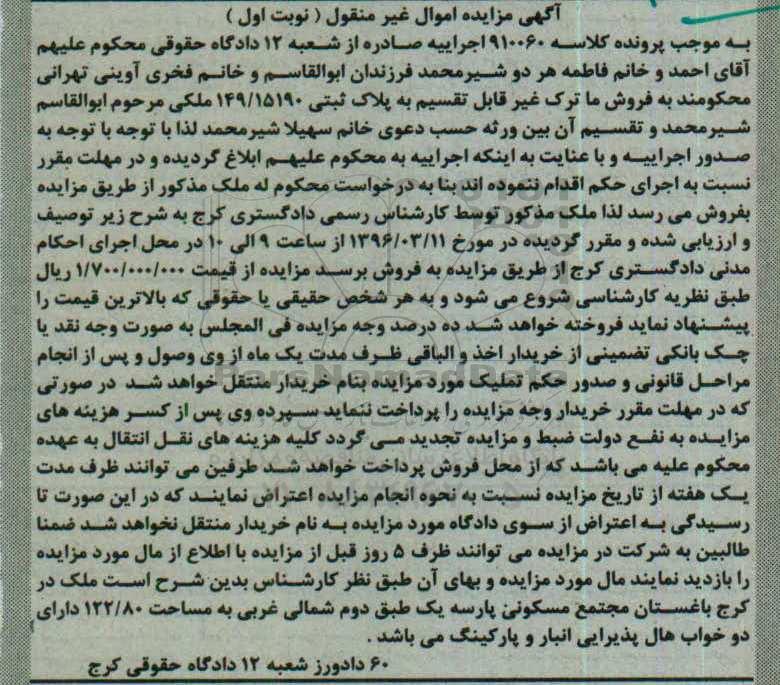 آگهی مزایده اموال غیر منقول ( نوبت اول )
به موجب پرونده کلاسه ۹۱۰۰۶۰ اجراییه صادره از شعبه ۱۲ دادگاه حقوقی محکوم علیهم
آقای احمد و خانم فاطمه هر دو شیرمحمد فرزندان ابوالقاسم و خانم فخری آوینی تهرانی
محکومند به فروش ما ترک غیر قابل تقسیم به پلاک ثبتی ۱۴۹/۱۵۱۹۰ ملکی مرحوم ابوالقاسم
شیرمحمد و تقسیم آن بین ورثه حسب دعوی خانم سهیلا شیرمحمد لذا با توجه با توجه به
صدور اجراییه و با عنایت به اینکه اجراییه به محکوم علیهم ابلاغ گردیده و در مهلت مقرر
نسبت به اجرای حکم اقدام ننموده اند بنا به درخواست محکوم له ملک مذکور از طریق مزایده
بفروش می رسد لذا ملک مذکور توسط کارشناس رسمی دادگستری کرج به شرح زیر توصیف
و ارزیابی شده و مقرر گردیده در مورخ ۱۳۹۶/۰۳/۱۱ از ساعت ۹ الی ۱۰ در محل اجرای احکام
مدنی دادگستری کرج از طریق مزایده به فروش برسد مزایده از قیمت ۱/۷۰۰/۰۰۰/۰۰۰ ریال
طبق نظریه کارشناسی شروع می شود و به هر شخص حقیقی یا حقوقی که بالاترین قیمت را
پیشنهاد نماید فروخته خواهد شد ده درصد وجه مزایده فی المجلس به صورت وجه نقد یا
چک بانکی تضمینی از خریدار اخذ و الباقی ظرف مدت یک ماه از وی وصول و پس از انجام
مراحل قانونی و صدور حکم تملیک مورد مزایده بنام خریدار منتقل خواهد شد در صورتی
که در مهلت مقرر خریدار وجه مزایده را پرداخت ننماید سپرده وی پس از کسر هزینه های
مزایده به نفع دولت ضبط و مزایده تجدید می گردد کلیه هزینه های نقل انتقال به عهده
محکوم علیه می باشد که از محل فروش پرداخت خواهد شد طرفین می توانند ظرف مدت
یک هفته از تاریخ مزایده نسبت به نحوه انجام مزایده اعتراض نمایند که در این صورت تا
رسیدگی به اعتراض از سوی دادگاه مورد مزایده به نام خریدار منتقل نخواهد شد ضمنا
طالبین به شرکت در مزایده می توانند ظرف ۵ روز قبل از مزایده با اطلاع از مال مورد مزایده
را بازدید نمایند مال مورد مزایده و بهای آن طبق نظر کارشناس بدین شرح است ملک در
کرج باغستان مجتمع مسکونی پارسه یک طبق دوم شمالی غربی به مساحت ۱۲۲/۸۰ دارای
دو خواب هال پذیرایی انبار و پارکینگ می باشد .
۶۰ دادورز شعبه ۱۲ دادگاه حقوقی کرج
ParsNamadData